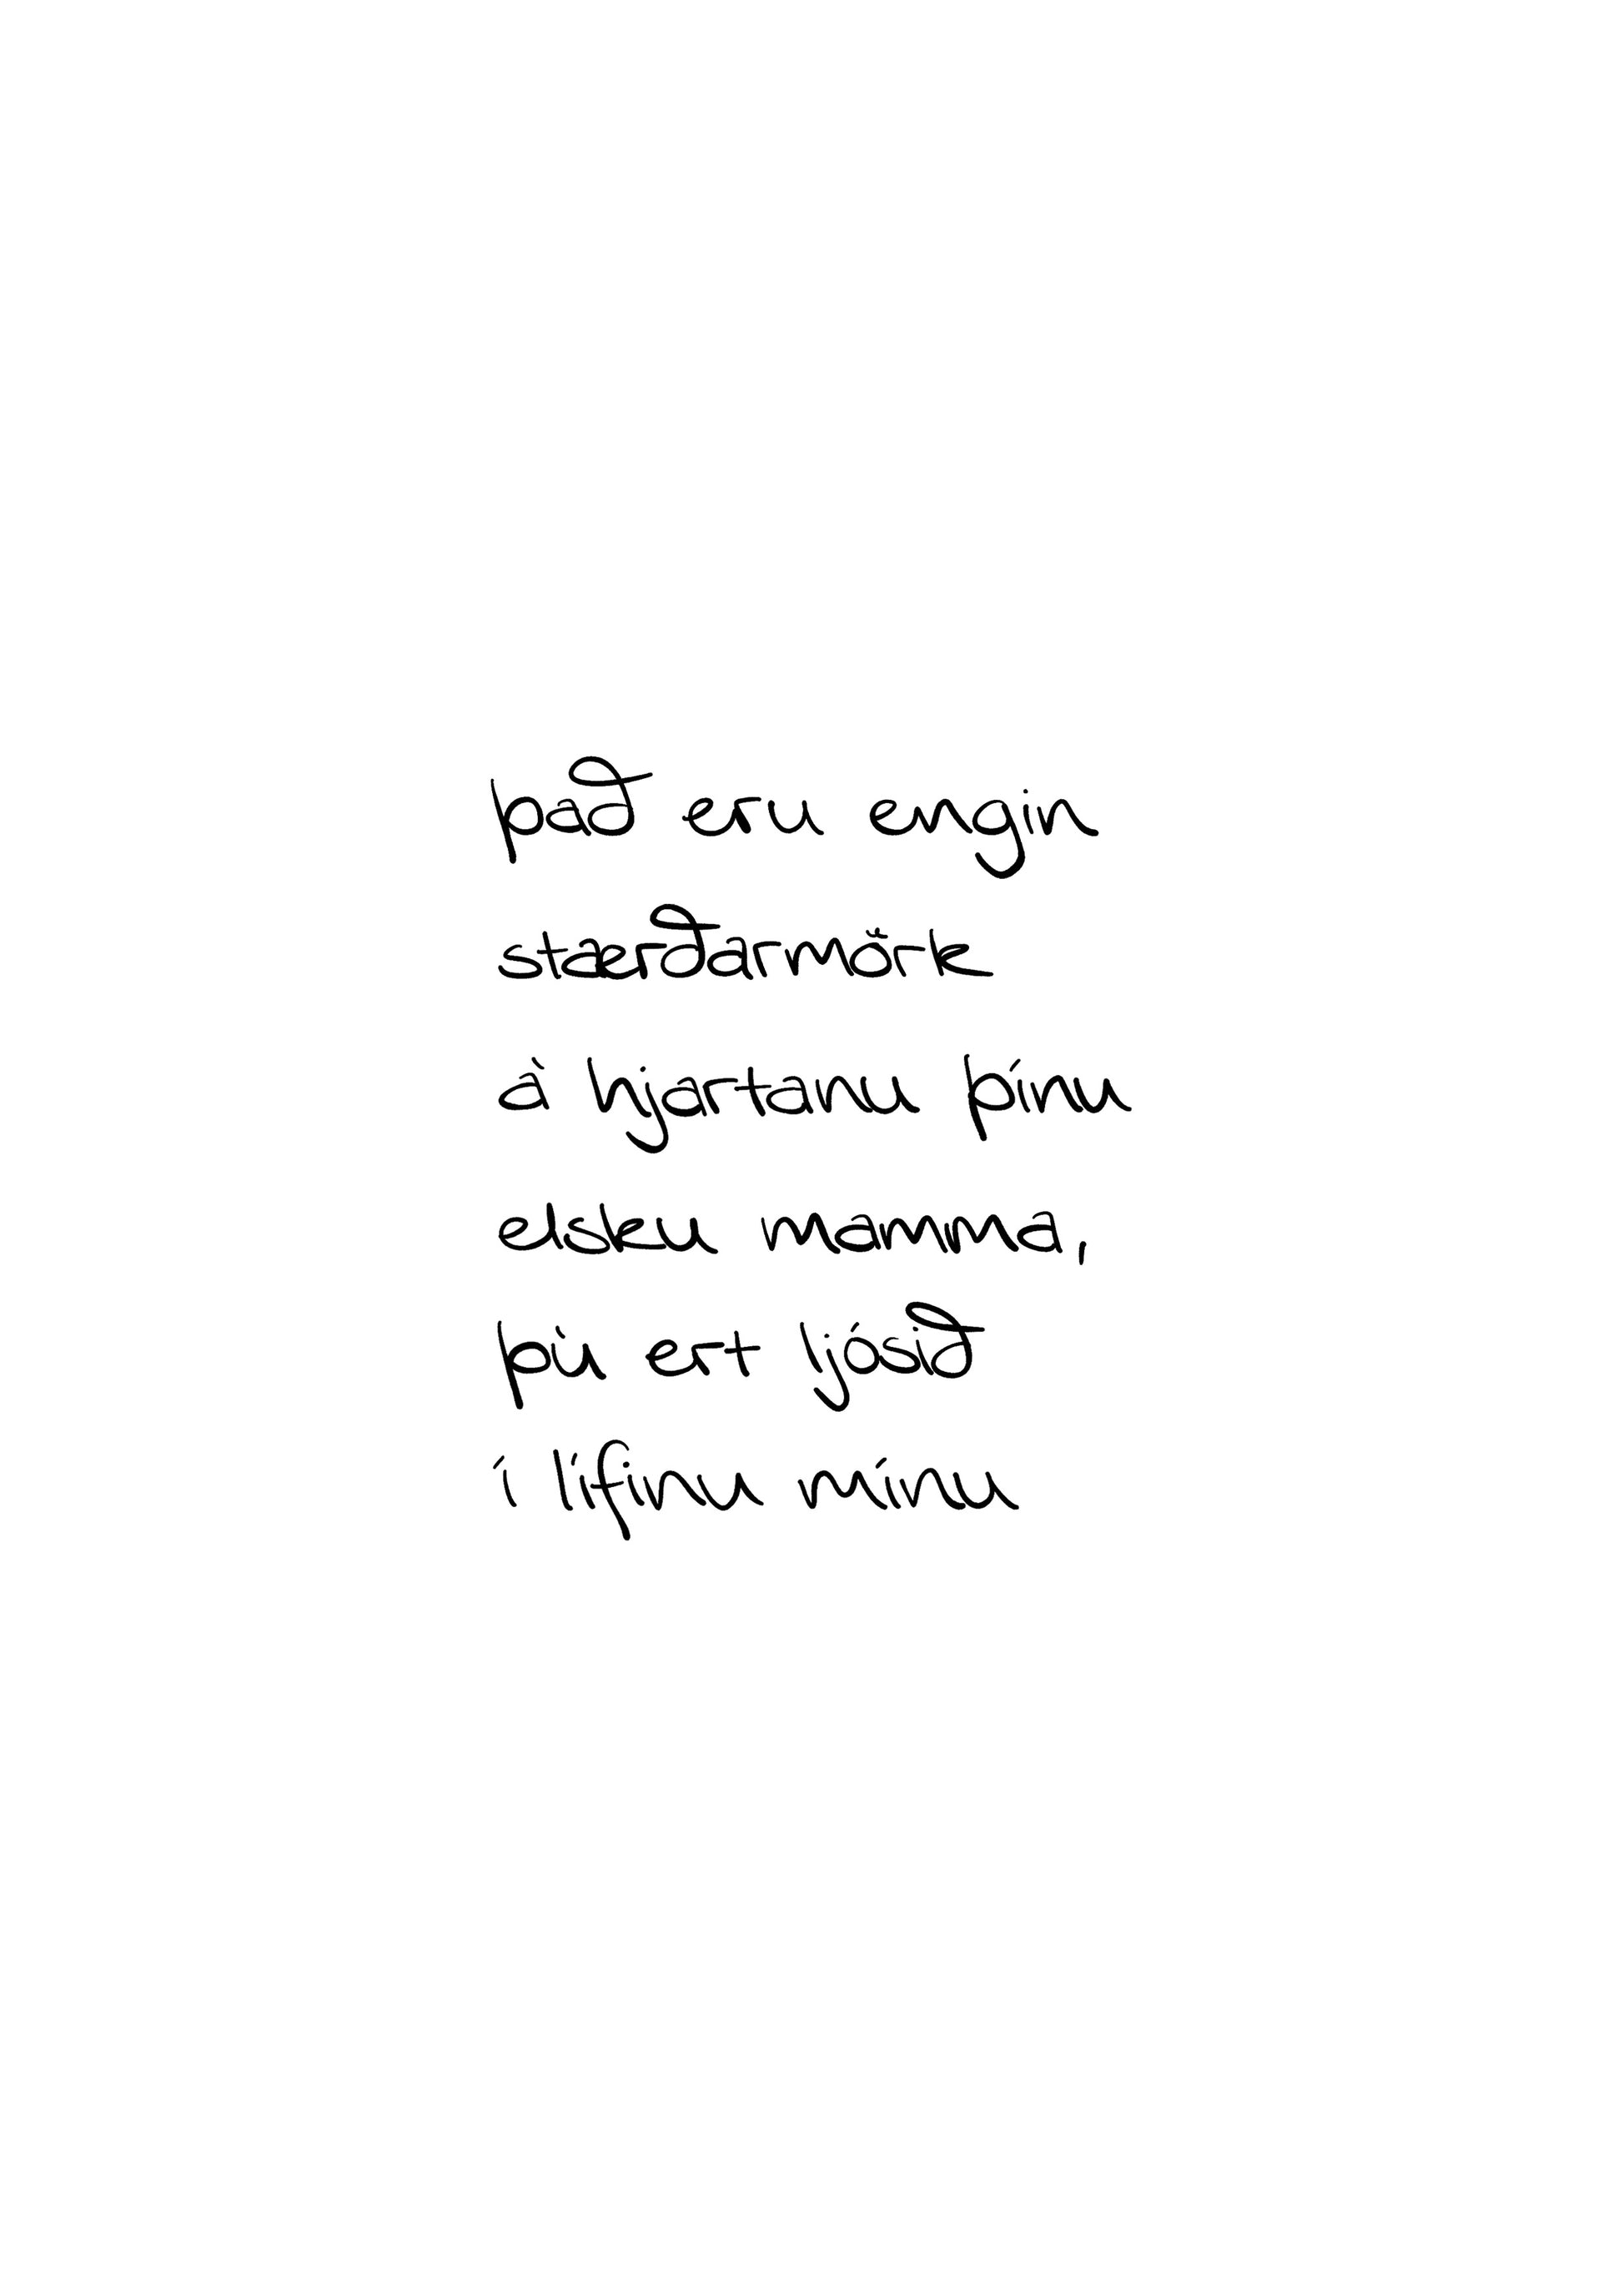 það eru engin
stærðarmörk
á hjartanu þínu
elsku mamma,
þú ert ljósið
í lífinu mínu